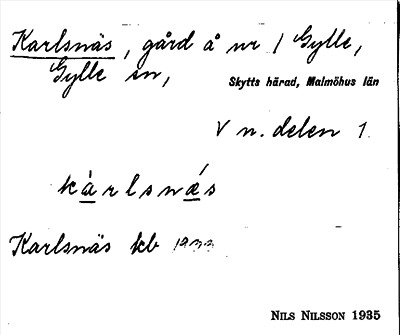 Karlsnäs, gård å nr 1 Gylle,
Gylle sn, Skytts härad, Malmöhus län
V n. delen 1.
kàrlsnǽs
Karlsnäs kb
NILS NILSSON 1935